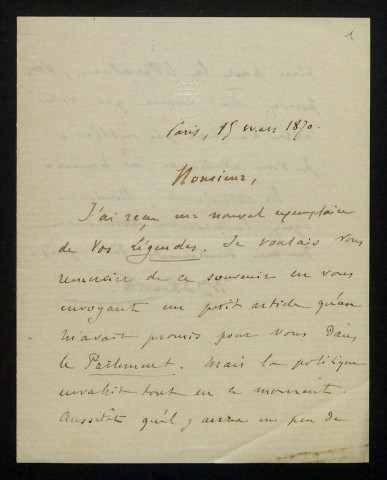 1
Paris, 15 mars 1870.
Monsieur,
J'ai reçu un nouvel exemplaire
de vos Légendes. Je voulais vous
remercier de ce souvenir en vous
envoyant un petit article qu'on
m'avait promis pour vous dans
le Parlement. Mais la politique
envahit tout en ce moment.
Aussitôt qu'il y aura un peu de